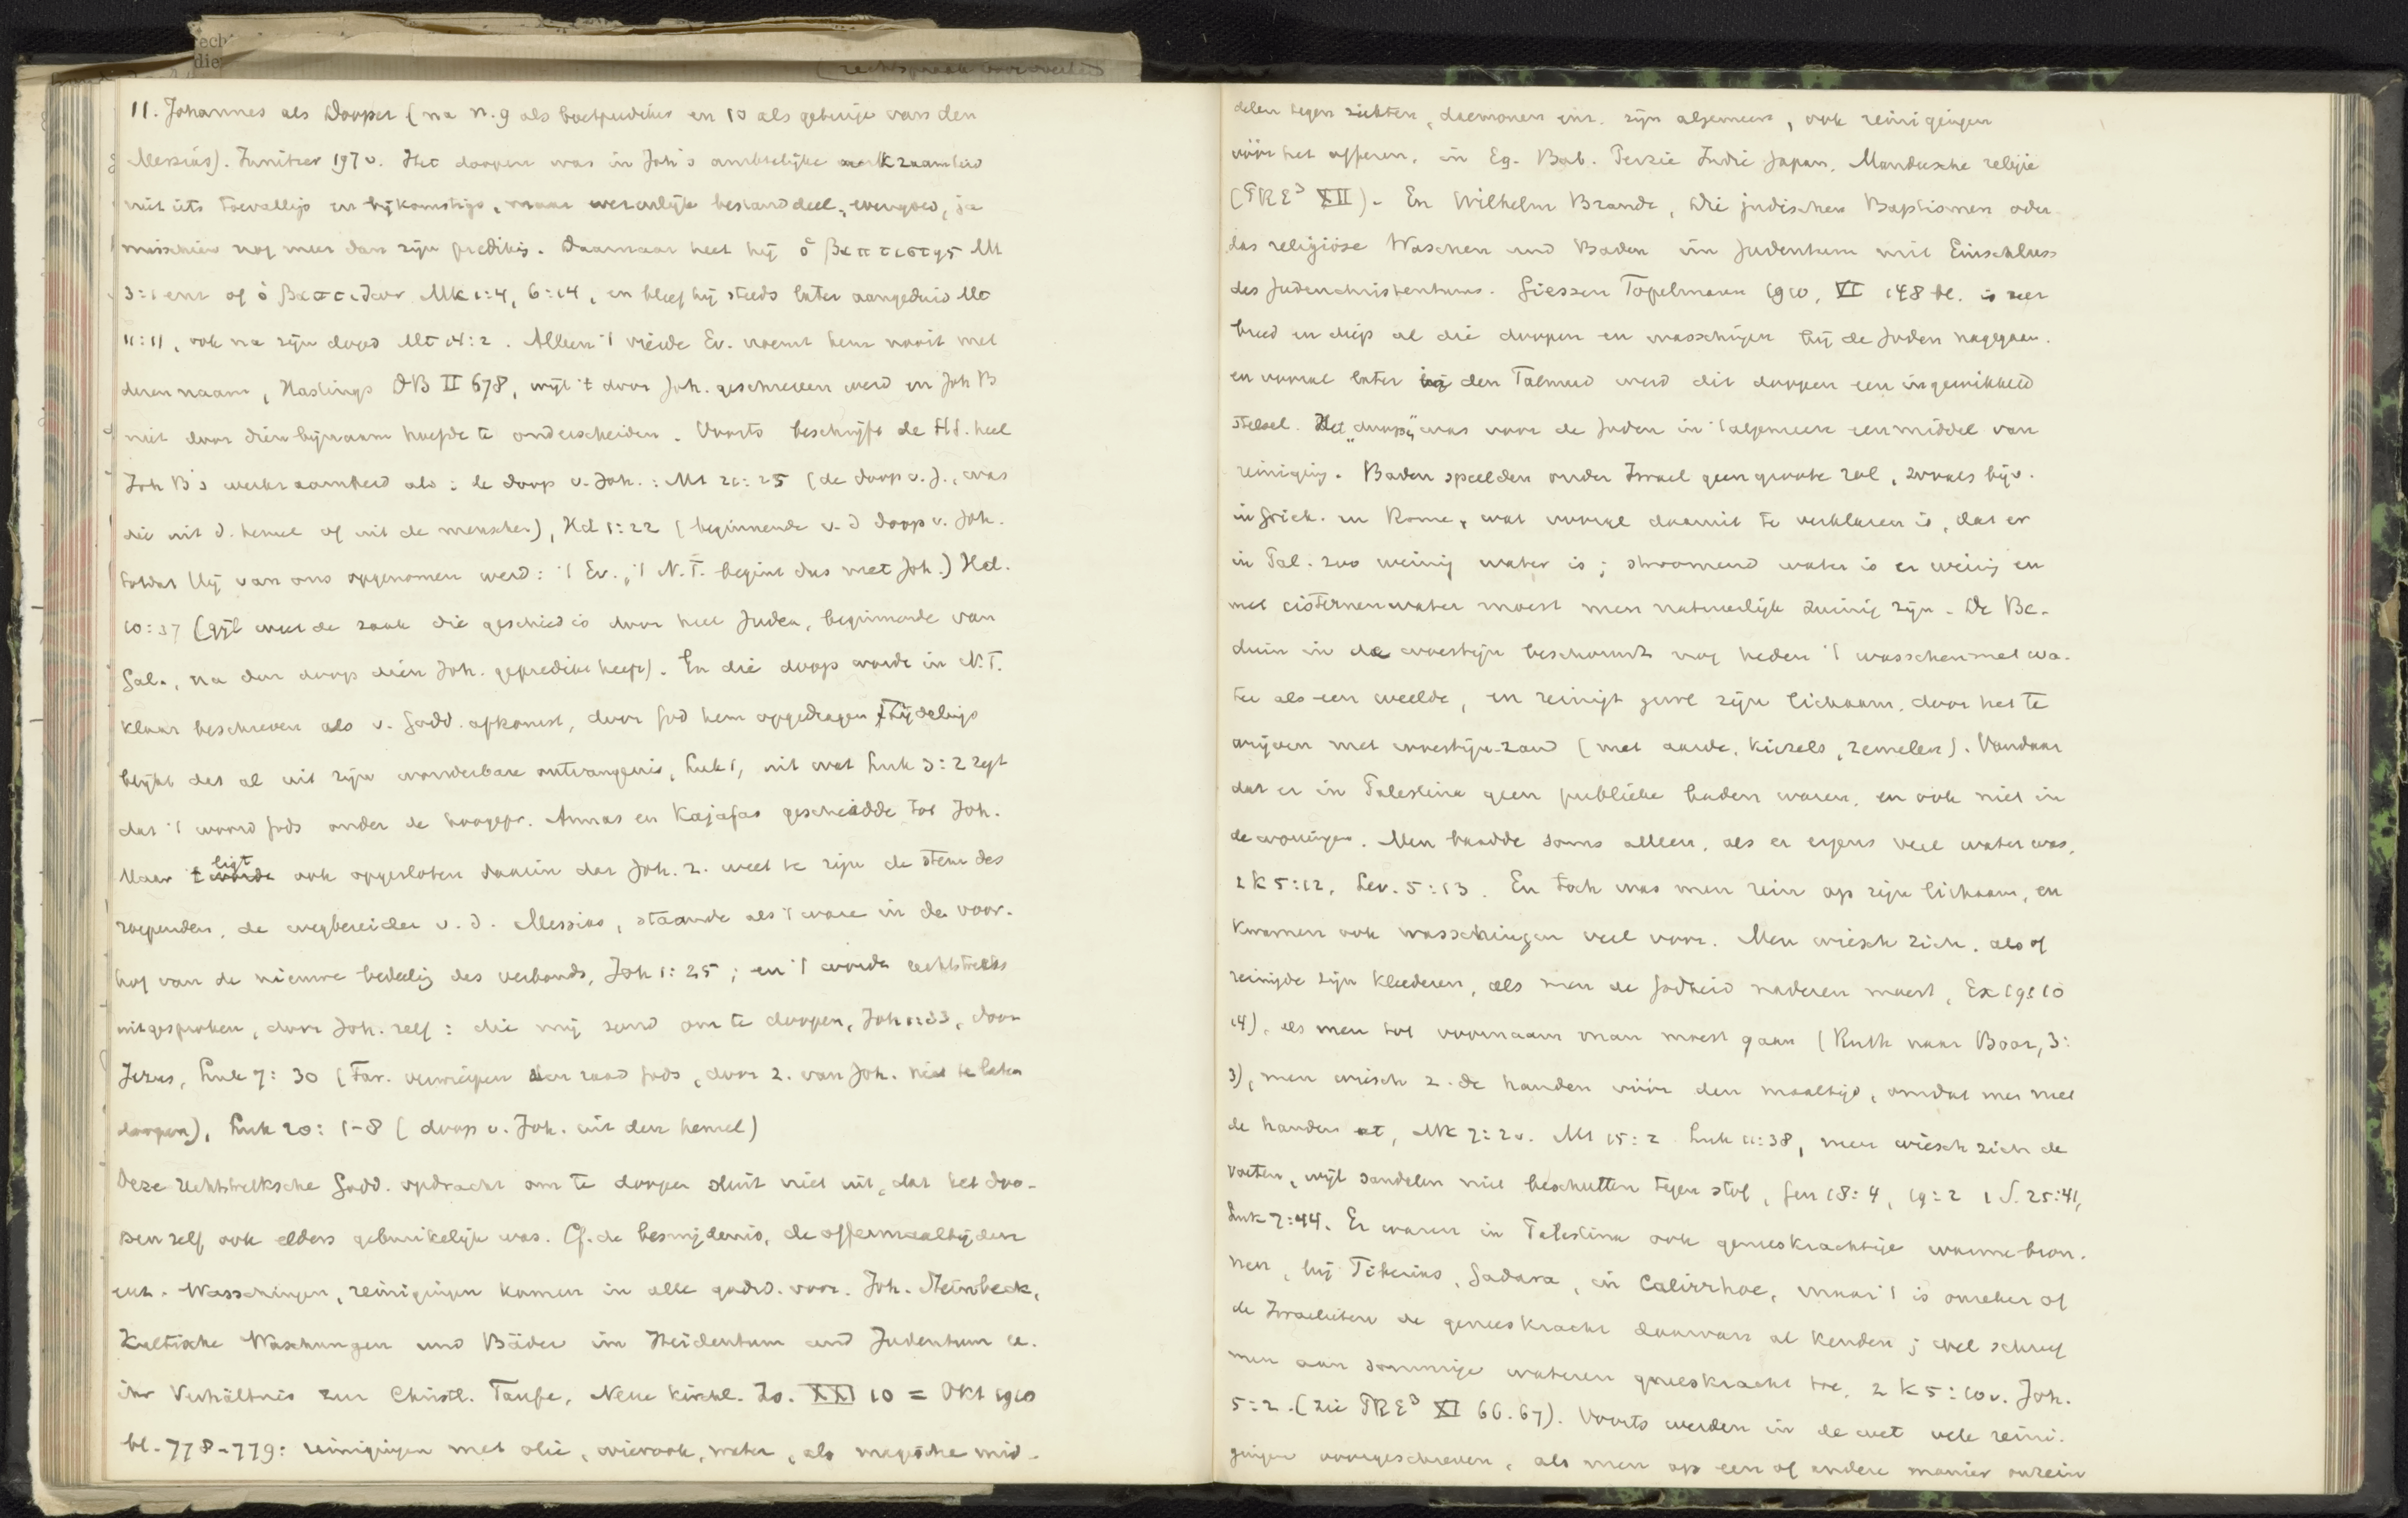 rech
die
11. Johannes als Dooper (na n. 9 als boetprediker en 10 als getuige van den
Messias). Innitzer 197 v. Het doopen was in Joh's ambtelijke werkzaamheid
niet iets toevalligs en bijkomstigs, maar wezenlijk bestanddeel, evengoed, ja
misschien nog meer dan zijn predikg. Daarnaar heet hij ὁ βαπτιστης Mt
3:1 enz of ὁ βαπτιζων Mk 1:4, 6:14, en bleef hij steeds later aangeduid Mt
11:11, ook na zijn dood Mt 14:2. Alleen 't vierde Ev. noemt hem nooit met
dezen naam, Hastings DB II 678, wijl 't door Joh. geschreven werd en Joh B
niet door dien bijnaam hoefde te onderscheiden. Voorts beschrijft de H.S. heel
Joh B's werkzaamheid als: de doop v. Joh.: Mt 21:25 (de doop v. J., was
die uit d. hemel of uit de menschen), Hd 1:22 (beginnende v. d doop v. Joh.
totdat Hij van ons opgenomen werd: 't Ev., 't N.T. begint dus met Joh.) Hd.
10:37 (gijl. weet de zaak die geschied is door heel Judea, beginnende van
Gal., na den doop dien Joh. gepredikt heeft). En die doop wordt in N.T.
klaar beschreven als v. Godd. afkomst, door God hem opgedragen. Zijdelings
blijkt dat al uit zijn wonderbare ontvangenis, Luk 1, uit wat Luk 3:2 zegt
dat 't woord Gods onder de hoogepr. Annas en Kajafas geschiedde tot Joh.
Maar 't ligt ook opgesloten daarin dat Joh. z. weet te zijn de stem des
roependen, de wegbereider v. d. Messias, staande als 't ware in den voor-
hof van de nieuwe bedeelig des verbonds, Joh 1:25; en 't wordt rechtstreeks
uitgesproken, door Joh. zelf: die mij zond om te doopen, Joh 1:33, door
Jezus, Luk 7:30 (Far. verwierpen den raad Gods, door z. van Joh. niet te laten
doopen), Luk 20:1-8 (doop v. Joh. uit den hemel)
Deze rechtstreeksche Godd. opdracht om te doopen sluit niet uit, dat het doo-
pen zelf ook elders gebruikelijk was. Cf. de besnijdenis, de offermaaltijden
enz. Wasschingen, reinigingen komen in alle godsd. voor. Joh. Steinbeck,
Kultische Waschungen und Bäder im Heidentum und Judentum u.
ihr Verhältnis zur Christl. Taufe, Neue kirchl. Zs. XXI 10 = Okt 1910
bl. 778-779: reinigingen met olie, wierook, water, als magische mid-
delen tegen ziekten, daemonen enz. zijn algemeen, ook reinigingen
vóór het offeren, in Eg. Bab. Perzie Indie Japan, Mandeesche religie
(PRE³ XII). En Wilhelm Brandt, Die jüdischen Baptismen oder
das religiöse Waschen und Baden im Judentum mit Einschluss
des Judenchristentums. Giessen Töpelmann 1910, VI 148 bl. is zeer
breed en diep al die doopen en wasschingen bij de Joden nagegaan.
en vooral later bij den Talmud werd dit doopen een ingewikkeld
stelsel. Het „doopen" was voor de Joden in 't algemeen een middel van
reiniging. Baden speelden onder Israel geen groote rol, zooals bijv.
in Griek. en Rome, wat vooral daaruit te verklaren is, dat er
in Pal. zoo weinig water is; stroomend water is er weinig en
met cisternenwater moest men natuurlijk zuinig zijn. De Be-
duin in de woestijn beschouwt nog heden 't wasschen met wa-
ter als een weelde, en reinigt gewl zijn lichaam, door het te
wrijven met woestijn-zand (met aarde, kiezels, zemelen). Vandaar
dat er in Palestina geen publieke baden waren, en ook niet in
de woningen. Men baadde soms alleen, als er ergens veel water was,
2 K 5:12, Lev. 5:13. En toch was men rein op zijn lichaam, en
kwamen ook wasschingen veel voor. Men wiesch zich, als of
reinigde zijn kleederen, als men de Godheid naderen moest, Ex 19:10
14), als men tot voornaam man moest gaan (Ruth naar Boaz, 3:
3), men wiesch z. de handen vóór den maaltijd, omdat men met
de handen at, Mk 7:2 v. Mt 15:2 Luk 11:38, men wiesch zich de
voeten, wijl sandalen niet beschutten tegen stof, Gen 18:4, 19:2 1 S. 25:41,
Luk 7:44. Er waren in Palestina ook geneeskrachtige warme bron-
nen, bij Tiberias, Gadara, in Calirrhoe, maar 't is onzeker of
de Israelieten de geneeskracht daarvan al kenden; wel schreef
men aan sommige wateren geneeskracht toe, 2 K 5:10 v. Joh.
5:2. (zie PRE³ XI 66.67). Voorts werden in de wet vele reini-
gingen voorgeschreven, als men op een of andere manier onrein